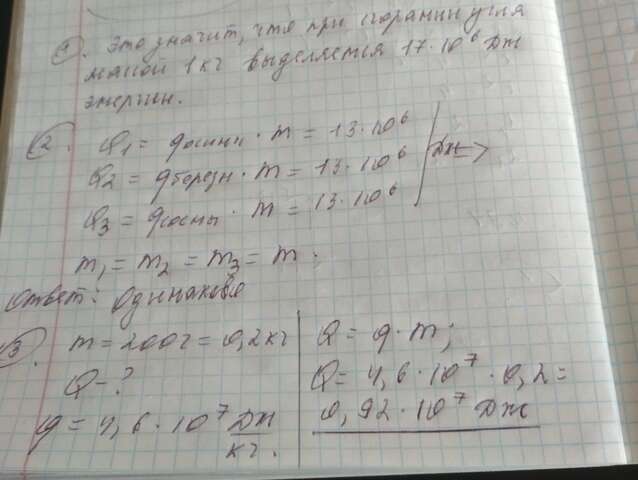 1. Это значит, что при сгорании угля
массой 1 кг выделяется 17·10⁶ Дж
энергии.
2. Q₁ = qосины · m = 13·10⁶
Q₂ = qберезы · m = 13·10⁶ Дж =>
Q₃ = qсосны · m = 13·10⁶
m₁ = m₂ = m₃ = m.
Ответ: Одинаковое
3. m = 200г = 0,2кг
Q - ?
q = 4,6·10⁷ Дж/кг.
Q = q·m;
Q = 4,6·10⁷·0,2 =
0,92·10⁷ Дж